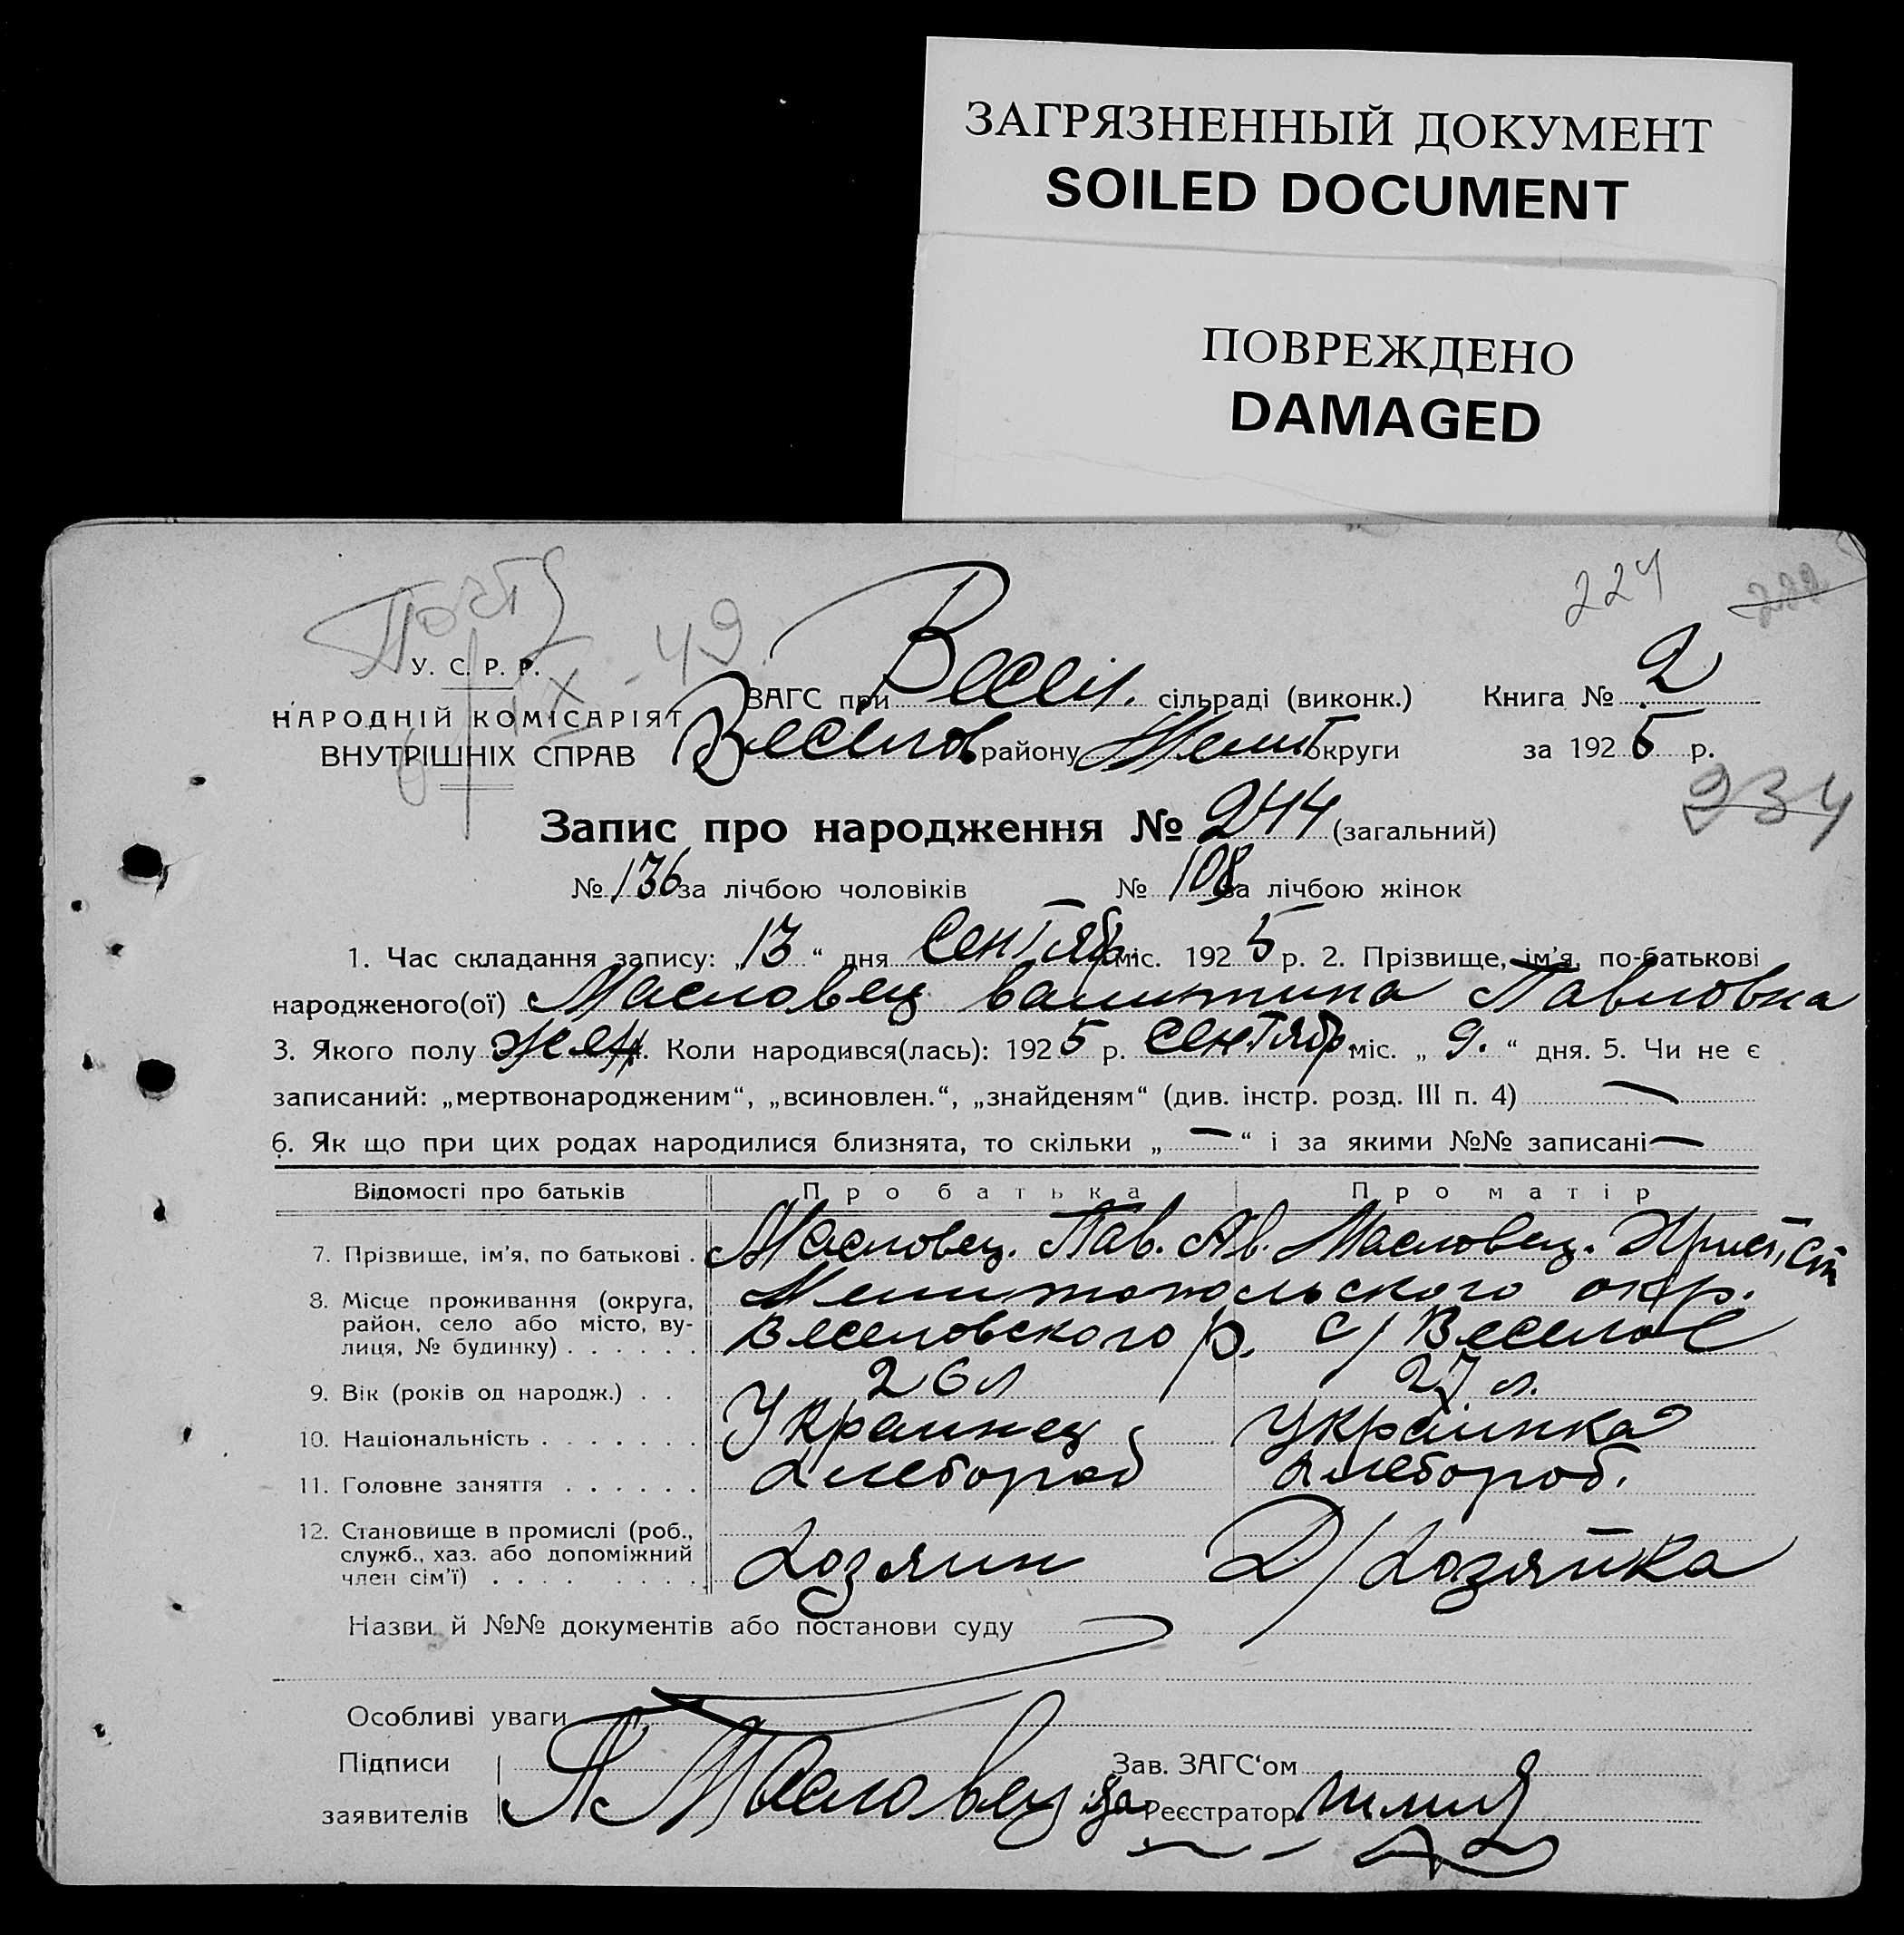 ЗАГРЯЗНЕННЫЙ ДОКУМЕНТ
SOILED DOCUMENT
ПОВРЕЖДЕНО
DAMAGED
224
У. С. Р. Р.
НАРОДНІЙ КОМІСАРІЯТ
ВНУТРІШНІХ СПРАВ
ЗАГС при Весел. сільраді (виконк.) Книга № 2
Веселов району Мелит округи за 1925 р.
234
Запис про народження № 244 (загальний)
№ 136 за лічбою чоловіків № 108 за лічбою жінок
1. Час складання запису: „13“ дня Сентябр. міс. 1925 р. 2. Прізвище, ім’я, по-батькові
народженого(ої) Масловец Валинтина Павловна
3. Якого полу жен. Коли народився(лась): 1925 р. Сентябр. міс. „9.“ дня. 5. Чи не є
записаний: „мертвонародженим“, „всиновлен.“, „знайденям“ (див. інстр. розд. III п. 4) —
6. Як що при цих родах народилися близнята, то скільки „—“ і за якими №№ записані —
Відомості про батьків Про батька Про матір
7. Прізвище, ім’я, по батькові . Масловец. Пав. Ав. Масловец. Христ. Ст
8. Місце проживання (округа, Мелитопольского окр.
район, село або місто, ву- Веселовского р. с/ Веселое
лиця, № будинку) . . . . . .
9. Вік (років од народж.) . . 26 л 27 л.
10. Національність . . . . . . . Украинец Украинка
11. Головне заняття . . . . . . Хлебороб Хлебороб.
12. Становище в промислі (роб.,
служб., хаз. або допоміжний Хозяин Д/Хозяйка
член сім’ї) . . . . . . . .
Назви й №№ документів або постанови суду
Особливі уваги
Підписи Зав. ЗАГС‘ом
заявителів П. Масловец за Реєстратор